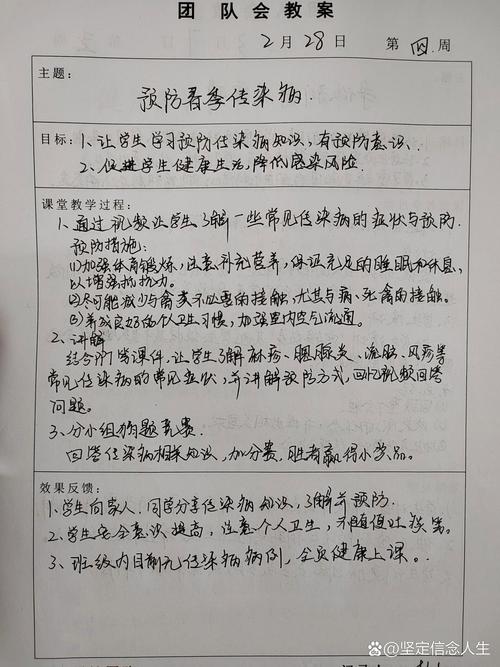 团队会教案
2月28日 第四周
主题：
预防春季传染病.
目标：1、让学生学习预防传染病知识，有预防意识.
2、促进学生健康生活，降低感染风险.
课堂教学过程：
1、通过视频让学生了解一些常见传染病的症状与预防.
预防措施：
(1)加强体育锻炼，注意补充营养，保证充足的睡眠和休息，
以增强抵抗力。
(2)尽可能减少与禽类不必要的接触，尤其与病、死禽的接触。
(3)养成良好的个人卫生习惯，加强室内空气流通。
2、讲解
结合课件，让学生了解麻疹、腮腺炎、流脑、风疹等
常见传染病的常见症状，并讲解预防方式，回忆视频回答
问题。
3、分小组答题竞赛.
回答传染病相关知识，加分赛，胜者赢得小学品。
效果反馈：
1、学生向家人、同学分享传染病知识，了解并预防.
2、学生安全意识提高，注意个人卫生，不随便吐痰等。
3、班级内目前无传染病病例，全员健康上课。
@坚定信念人生